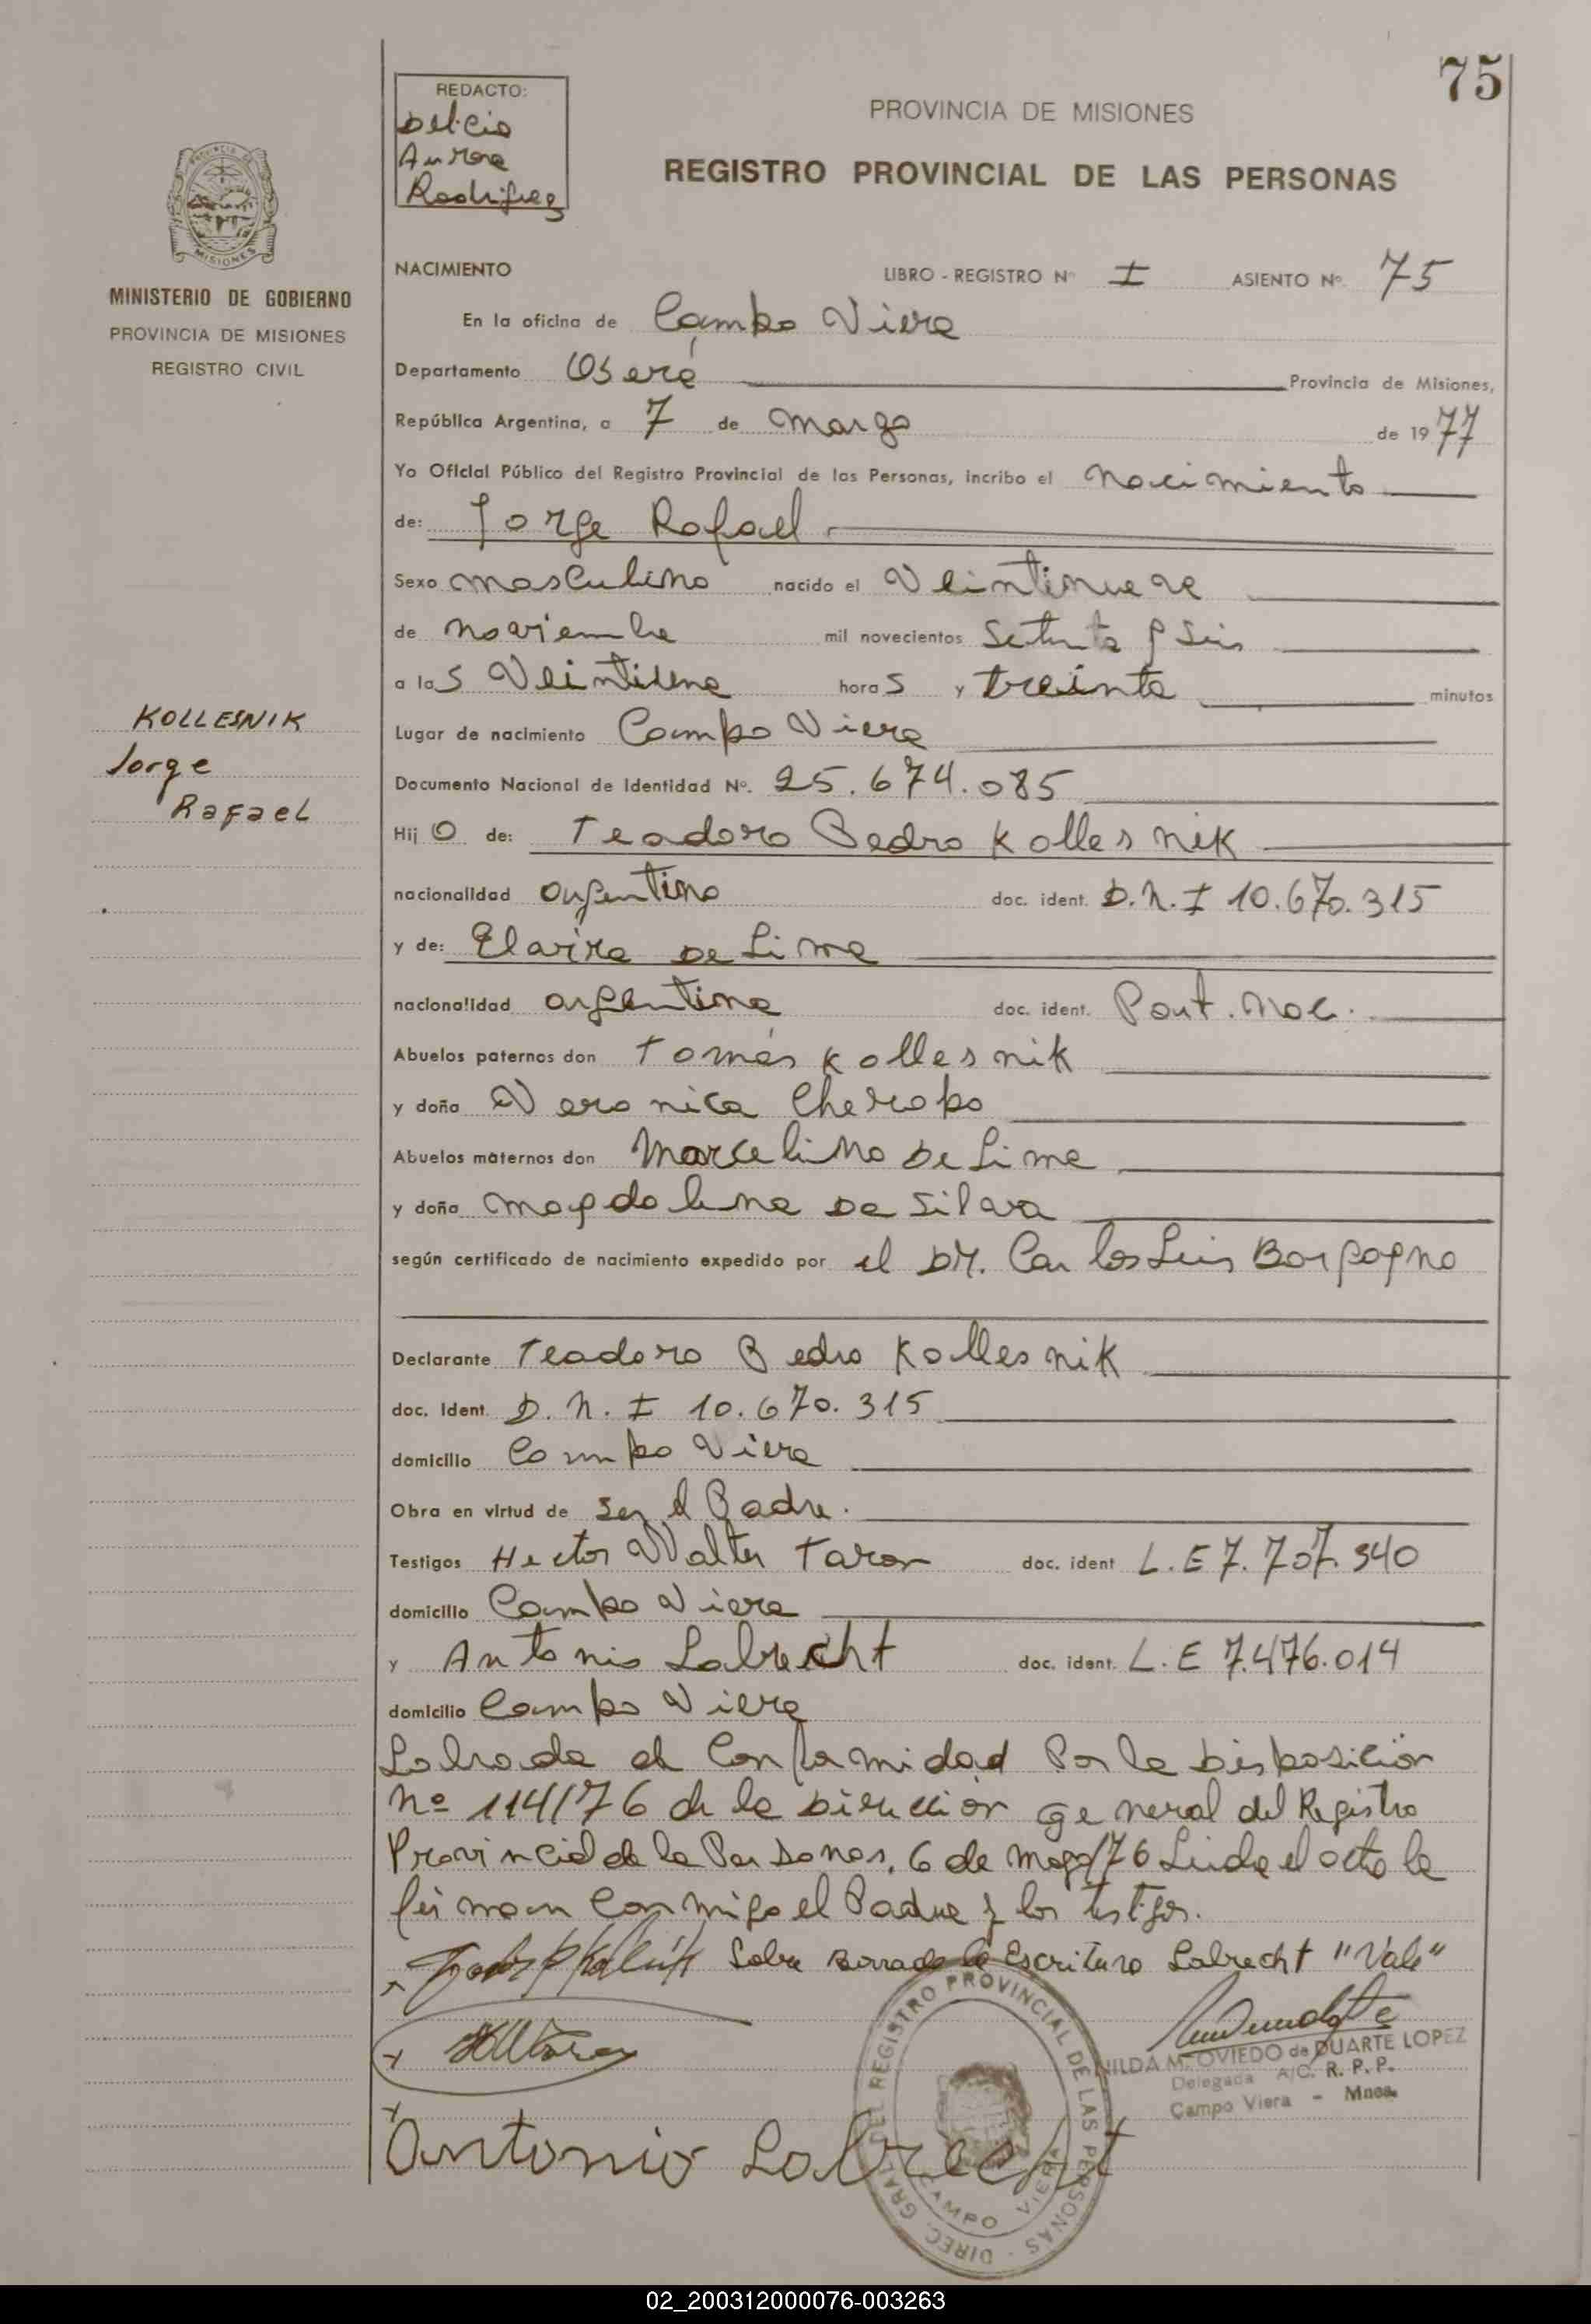 75
REDACTO:
Delicia
Aurora
Rodriguez
PROVINCIA DE MISIONES
REGISTRO PROVINCIAL DE LAS PERSONAS
PROVINCIA DE
MISIONES
MINISTERIO DE GOBIERNO
PROVINCIA DE MISIONES
REGISTRO CIVIL
NACIMIENTO LIBRO - REGISTRO Nº I ASIENTO Nº. 75
En la oficina de Campo Viera
Departamento Oberá Provincia de Misiones,
República Argentina, a 7 de Marzo de 1977
Yo Oficial Público del Registro Provincial de las Personas, incribo el nacimiento
de: Jorge Rafael
Sexo masculino nacido el Veintinueve
de noviembre mil novecientos Setenta y Seis
a las Veintiuna horas y treinta minutos
KOLLESNIK
Jorge
Rafael
Lugar de nacimiento Campo Viera
Documento Nacional de Identidad Nº. 25.674.085
Hijo de: Teodoro Pedro Kollesnik
nacionalidad argentino doc. ident. D.N.I 10.670.315
y de: Elavira De Lima
nacionalidad argentina doc. ident. Part. Nac.
Abuelos paternos don Tomás Kollesnik
y doña Veronica Cherapo
Abuelos maternos don Marcelino De Lima
y doña Magdalena Da Silva
según certificado de nacimiento expedido por el Dr. Carlos Luis Borgogno
Declarante Teodoro Pedro Kollesnik
doc. Ident. D.N.I 10.670.315
domicilio Campo Viera
Obra en virtud de Ser el Padre.
Testigos Hector Walter Taron doc. ident L.E 7.707.540
domicilio Campo Viera
y Antonio Labrecht doc. ident. L.E 7.476.014
domicilio Campo Viera
Labrada de Conformidad Por la Disposición
Nº 114/76 de la Dirección General del Registro
Provincial de la Personas. 6 de Mayo/76 Leida el acta la
firman Conmigo el Padre y los testigos.
Sobre Borrado la Escritura Labrecht "Vale"
NILDA M. OVIEDO de DUARTE LOPEZ
Delegada A/C. R. P. P.
Campo Viera - Mnes.
Antonio Labrecht
DIREC. GRAL. DEL REGISTRO PROVINCIAL DE LAS PERSONAS
CAMPO VIERA
02_200312000076-003263